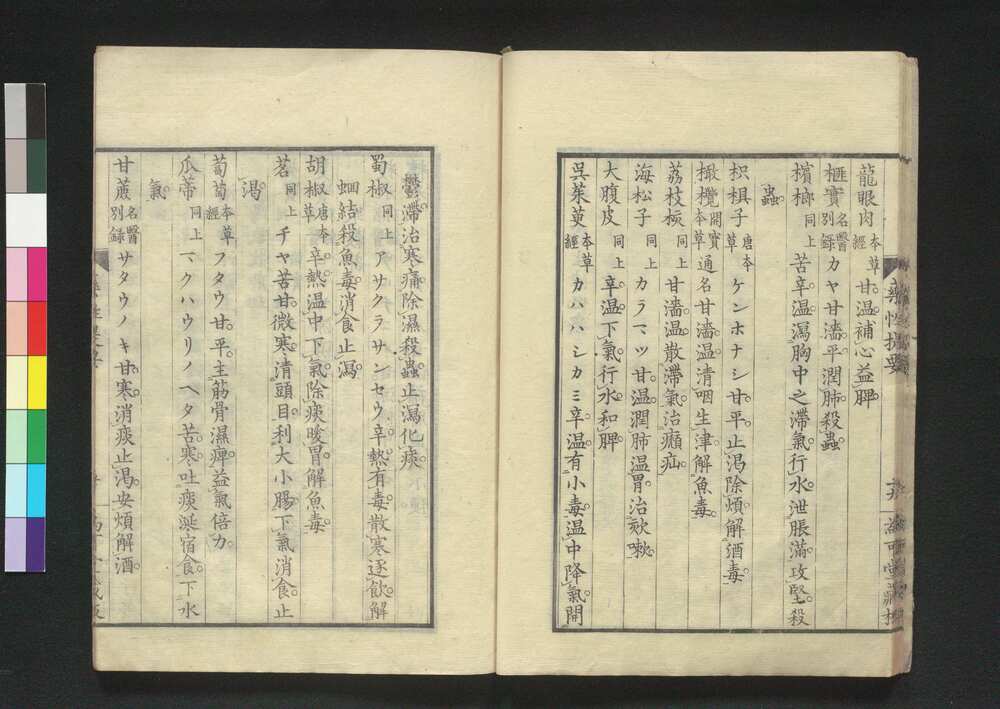 龍眼肉 本草經 甘温補心益脾
榧實 名醫別錄 カヤ甘濇平潤肺殺蟲
檳榔 同上 苦辛温瀉胸中之滯氣行水泄脹滿攻堅殺
蟲
枳椇子 唐本草 ケンホナシ甘平止渇除煩解酒毒
橄欖 開寶本草 通名甘濇温清咽生津解魚毒
茘枝核 同上 甘濇温散滯氣治㿗疝
海松子 同上 カラマツ甘温潤肺温胃治欬嗽
大腹皮 同上 辛温下氣行水和脾
呉茱萸 本草經 カハハシカミ辛温有小毒温中降氣開
藥性提要
鬱滯治寒痛除濕殺蟲止瀉化痰
蜀椒 同上 アサクラサンセウ辛熱有毒散寒逐飲解
蛔結殺魚毒消食止瀉
胡椒 唐本草 辛熱温中下氣除痰暖胃解魚毒
茗 同上 チヤ苦甘微寒清頭目利大小腸下氣消食止
渇
葡萄 本草經 フタウ甘平主筋骨濕痺益氣倍力
瓜蔕 同上 マクハウリノヘタ苦寒吐痰涎宿食下水
氣
甘蔗 名醫別錄 サタウノキ甘寒消痰止渇安煩解酒